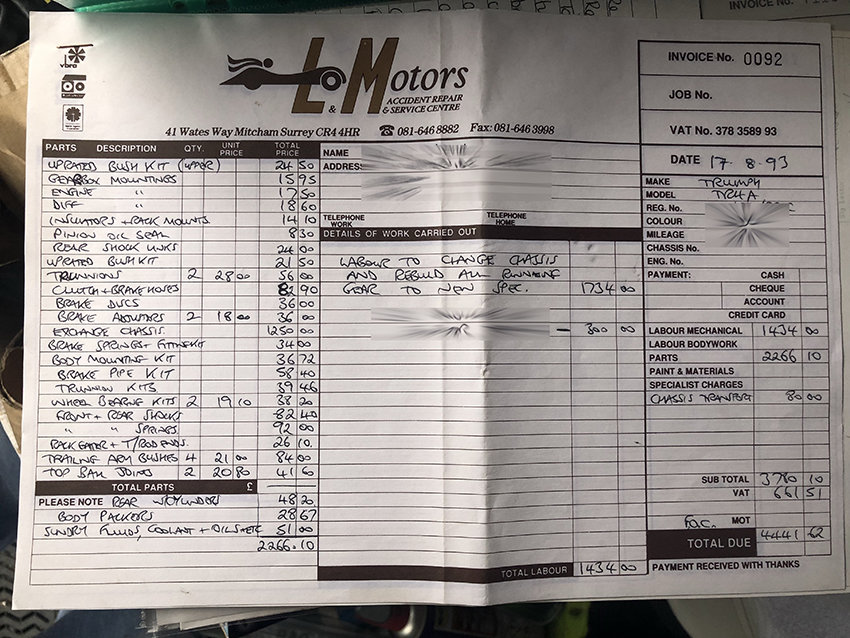 INVOICE No.
vbra
L & M Motors
ACCIDENT REPAIR
& SERVICE CENTRE
41 Wates Way Mitcham Surrey CR4 4HR ☎ 081-646 8882 Fax: 081-646 3998
INVOICE No. 0092
JOB No.
VAT No. 378 3589 93
DATE 17-8-93
MAKE TRIUMPH
MODEL TR4A
REG. No.
COLOUR
MILEAGE
CHASSIS No.
ENG. No.
PAYMENT: CASH
CHEQUE
ACCOUNT
CREDIT CARD
PARTS DESCRIPTION QTY. UNIT PRICE TOTAL PRICE
UPRATED BUSH KIT (UPPER) 24 50
GEARBOX MOUNTINGS 15 95
ENGINE " 17 50
DIFF " 18 60
INSULATORS + RACK MOUNTS 14 10
PINION OIL SEAL 8 30
REAR SHOCK LINKS 24 00
UPRATED BUSH KIT 21 50
TRUNNIONS 2 28 00 56 00
CLUTCH + BRAKE HOSES 82 90
BRAKE DISCS 36 00
BRAKE ADJUSTERS 2 18 00 36 00
EXCHANGE CHASSIS. 1250 00
BRAKE SPRINGS + FITTING KIT 34 00
BODY MOUNTING KIT 36 72
BRAKE PIPE KIT 58 40
TRUNNION KITS 39 46
WHEEL BEARING KITS 2 19 10 38 20
FRONT + REAR SHOCKS 82 40
" " SPRINGS 92 00
RACK GAITER + T/ROD ENDS. 26 10.
TRAILING ARM BUSHES 4 21 00 84 00
TOP BALL JOINTS 2 20 80 41 60
TOTAL PARTS £
PLEASE NOTE REAR W/CYLINDERS 48 20
BODY PACKERS 28 67
SUNDRY FLUIDS, COOLANT + OILS ETC 51 00
2266.10
NAME
ADDRESS
TELEPHONE WORK
TELEPHONE HOME
DETAILS OF WORK CARRIED OUT
LABOUR TO CHANGE CHASSIS
AND REBUILD ALL RUNNING
GEAR TO NEW SPEC. 1734 00
— 300 00
TOTAL LABOUR 1434 00
LABOUR MECHANICAL 1434 00
LABOUR BODYWORK
PARTS 2266 10
PAINT & MATERIALS
SPECIALIST CHARGES
CHASSIS TRANSPORT 80 00
SUB TOTAL 3780 10
VAT 661 51
F.O.C. MOT
TOTAL DUE 4441 62
PAYMENT RECEIVED WITH THANKS